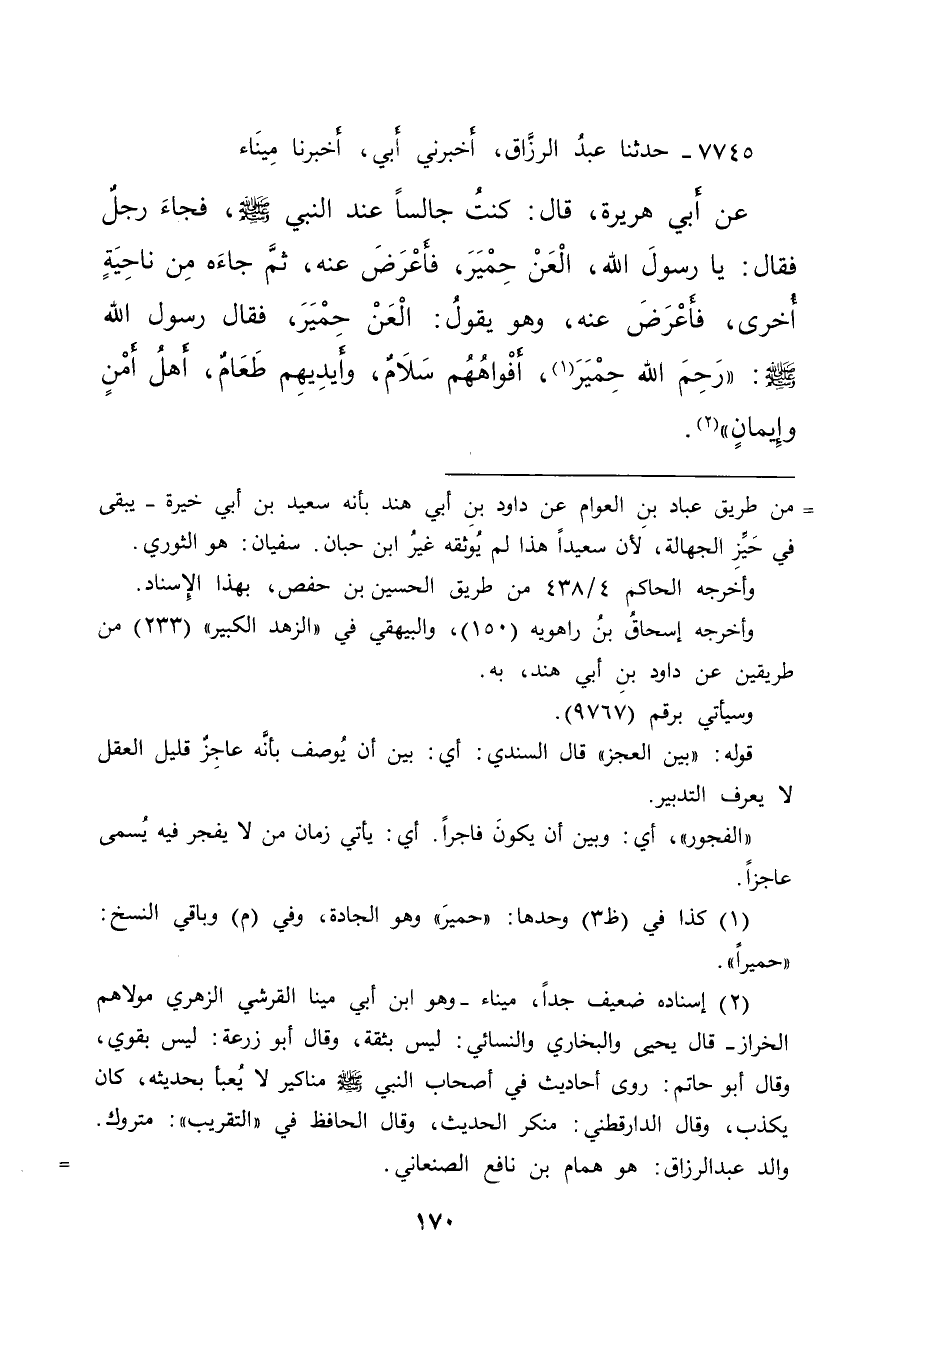 ٧٧٤٥ ـ حدثنا عبدُ الرزَّاق، أَخبرني أَبي، أَخبرنا مِينَاء
عن أَبي هريرة، قال: كنتُ جالساً عند النبي ﷺ، فجاءَ رجلٌ
فقال: يا رسولَ الله، الْعَنْ حِمْيَرَ، فأَعْرَضَ عنه، ثمَّ جاءَه مِن ناحِيَةٍ
أُخرى، فأَعْرَضَ عنه، وهو يقولُ: الْعَنْ حِمْيَرَ، فقال رسول الله
ﷺ: «رَحِمَ الله حِمْيَرَ(١)، أَفْواهُهُم سَلَامٌ، وأَيدِيهِم طَعَامٌ، أَهلُ أَمْنٍ
وإِيمانٍ»(٢).
= من طريق عباد بن العوام عن داود بن أبي هند بأنه سعيد بن أبي خيرة ـ يبقى
في حَيِّزِ الجهالة، لأن سعيداً هذا لم يُوثقه غيرُ ابن حبان. سفيان: هو الثوري.
وأخرجه الحاكم ٤٣٨/٤ من طريق الحسين بن حفص، بهذا الإسناد.
وأخرجه إسحاقُ بنُ راهويه (١٥٠)، والبيهقي في «الزهد الكبير» (٢٣٣) من
طريقين عن داود بنِ أبي هند، به.
وسيأتي برقم (٩٧٦٧).
قوله: «بين العجز» قال السندي: أي: بين أن يُوصف بأنَّه عاجِزٌ قليل العقل
لا يعرف التدبير.
«الفجور»، أي: وبين أن يكونَ فاجراً. أي: يأتي زمان من لا يفجر فيه يُسمى
عاجزاً.
(١) كذا في (ظ٣) وحدها: «حميرَ» وهو الجادة، وفي (م) وباقي النسخ:
«حميراً».
(٢) إسناده ضعيف جداً، ميناء ـ وهو ابن أبي مينا القرشي الزهري مولاهم
الخراز ـ قال يحيى والبخاري والنسائي: ليس بثقة، وقال أبو زرعة: ليس بقوي،
وقال أبو حاتم: روى أحاديث في أصحاب النبي ﷺ مناكير لا يُعبأ بحديثه، كان
يكذب، وقال الدارقطني: منكر الحديث، وقال الحافظ في «التقريب»: متروك.
والد عبدالرزاق: هو همام بن نافع الصنعاني. =
١٧٠